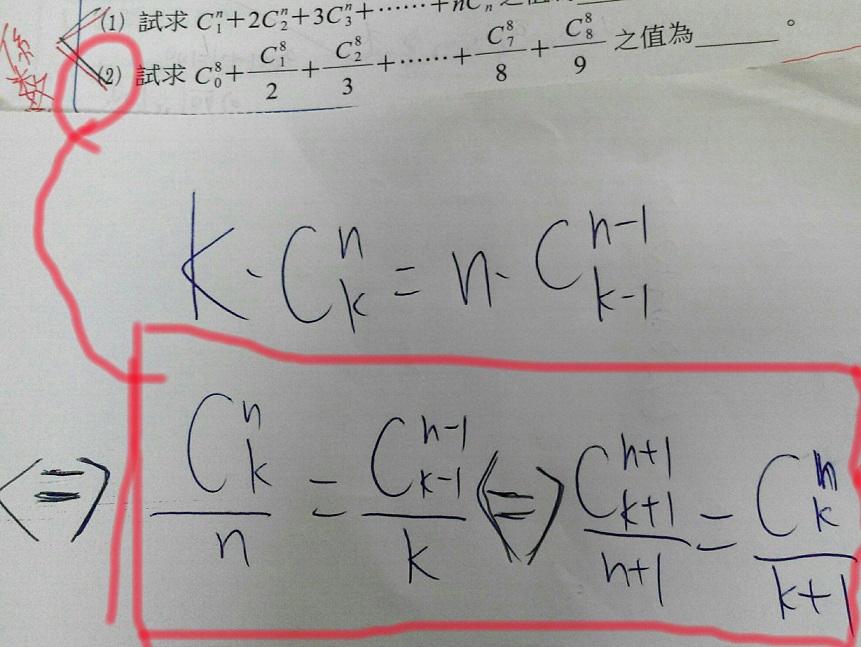 (1) 試求 C₁ⁿ+2C₂ⁿ+3C₃ⁿ+……+nCₙ
(2) 試求 C₀⁸+C₁⁸/2+C₂⁸/3+……+C₇⁸/8+C₈⁸/9 之值為______。
k·Cₖⁿ=n·Cₖ₋₁ⁿ⁻¹
<=> Cₖⁿ/n=Cₖ₋₁ⁿ⁻¹/k <=> Cₖ₊₁ⁿ⁺¹/n+1=Cₖⁿ/k+1